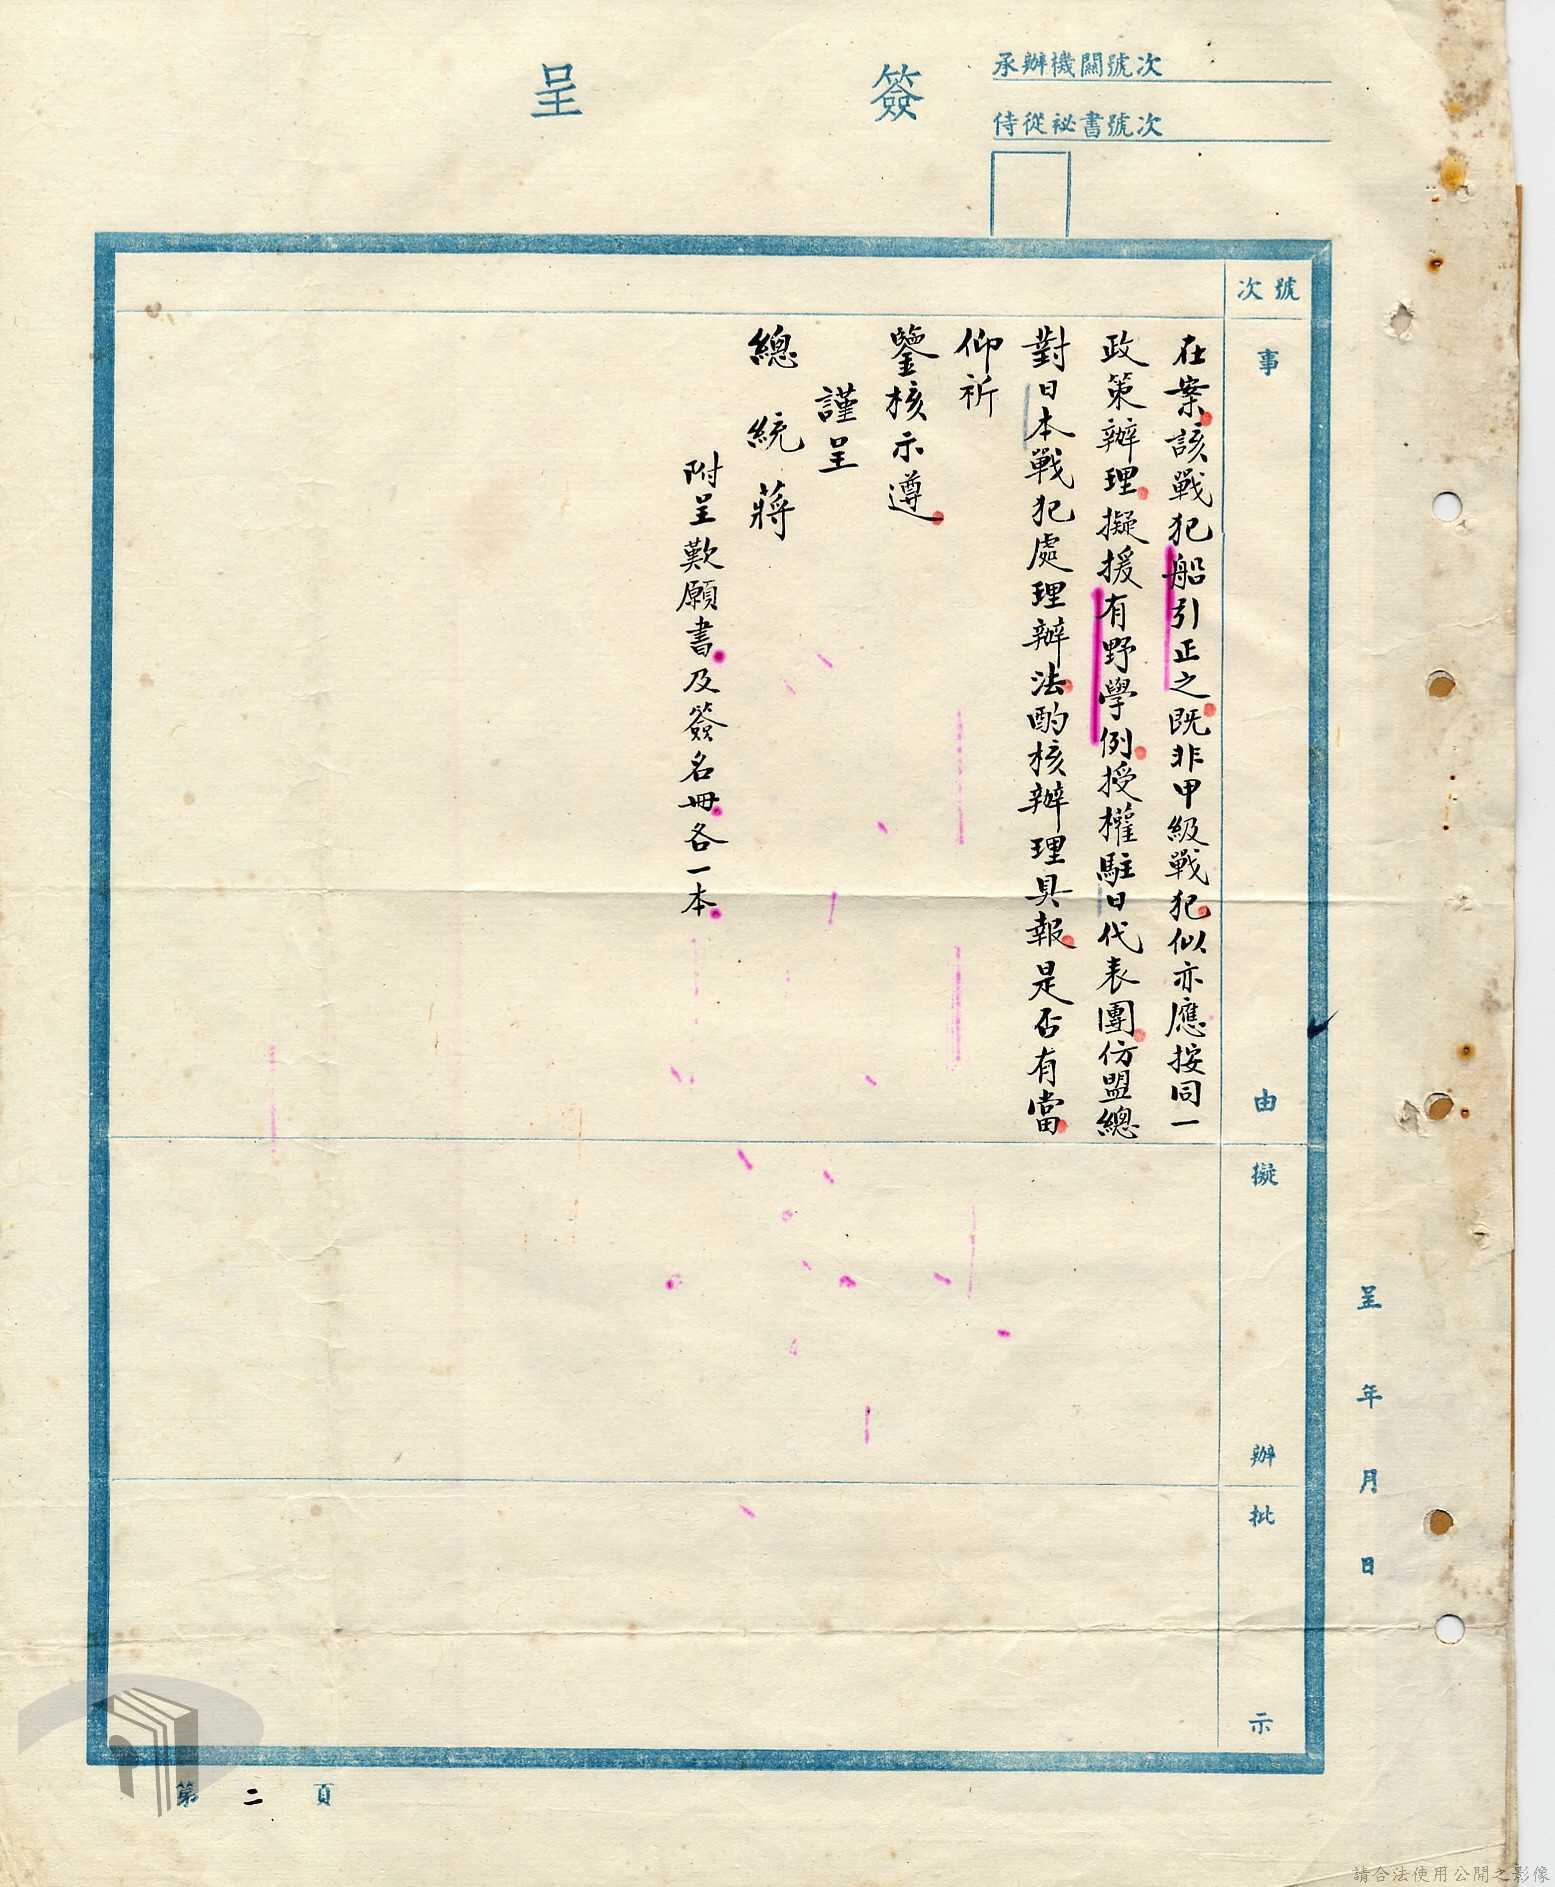 簽呈
承辦機關號次
侍從祕書號次
號次
事由
在案該戰犯船引正之既非甲級戰犯似亦應按同一
政策辦理擬援有野學例授權駐日代表團仿盟總
對日本戰犯處理辦法酌核辦理具報是否有當
仰祈
鑒核示遵
謹呈
總統蔣
附呈歎願書及簽名冊各一本
擬辦
批示
呈 年 月 日
第二頁
請合法使用公開之影像